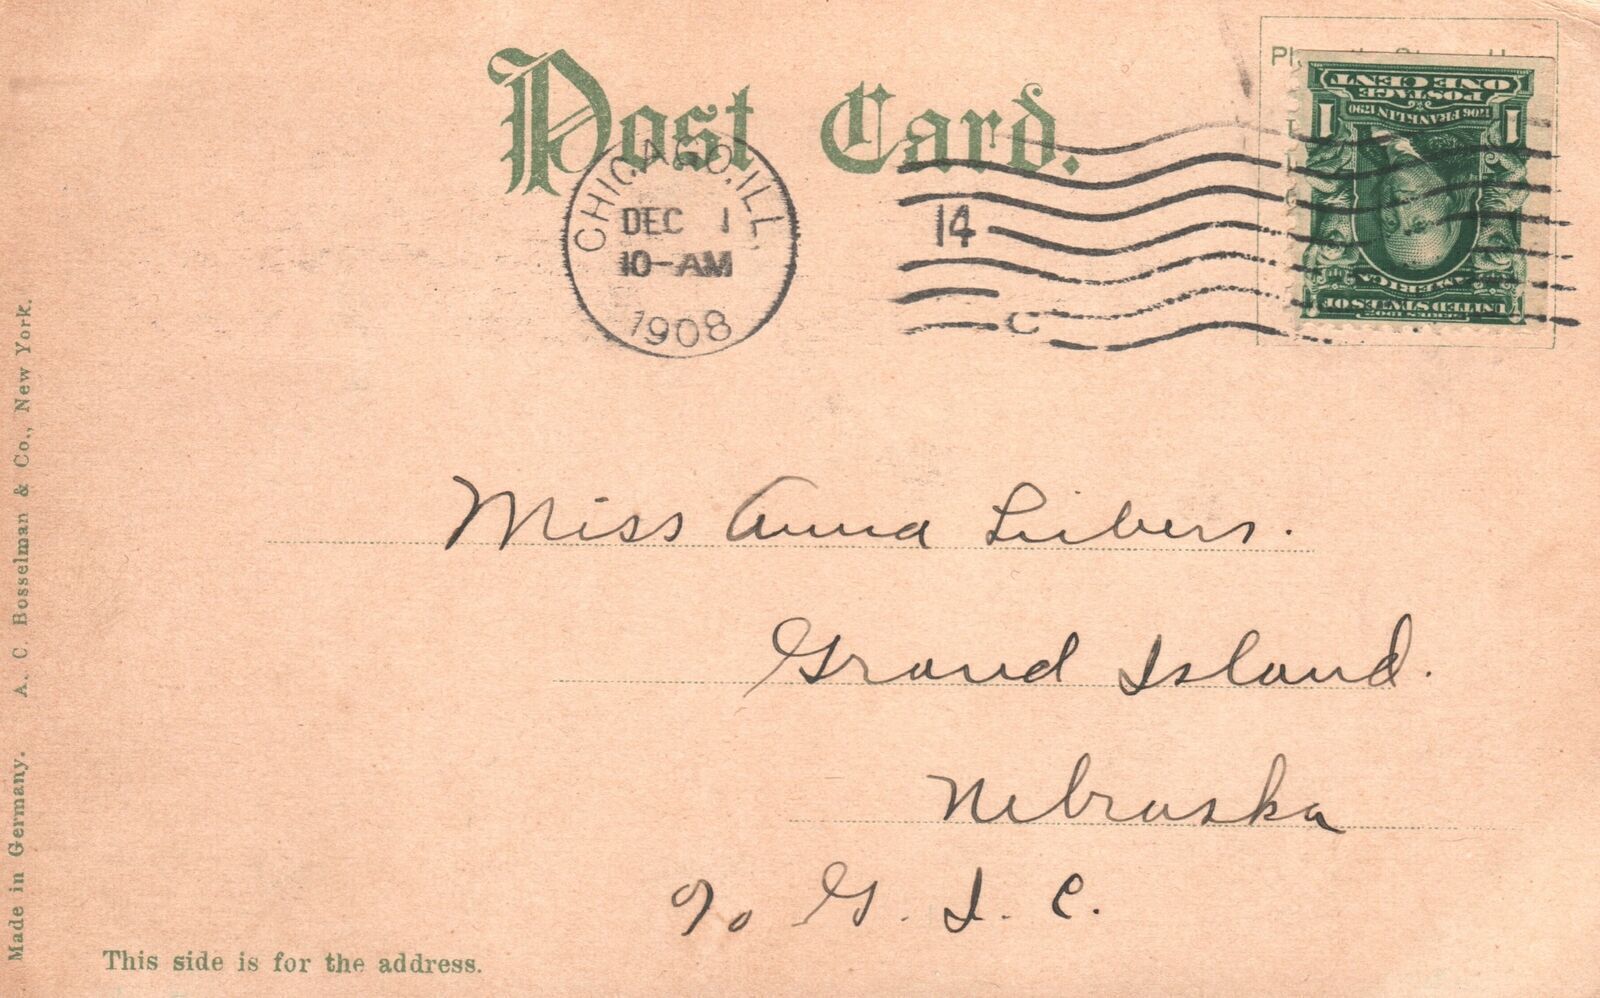 Post Card.
CHICAGO, ILL.
DEC 1
10-AM
1908
14
C
POSTAGE
ONE CENT
1706 FRANKLIN 1790
1 1
UNITED STATES OF
AMERICA
SERIES 1902
Miss Anna Liebers.
Grand Island.
Nebraska
c/o G. I. C.
This side is for the address.
Made in Germany. A. C. Bosselman & Co., New York.